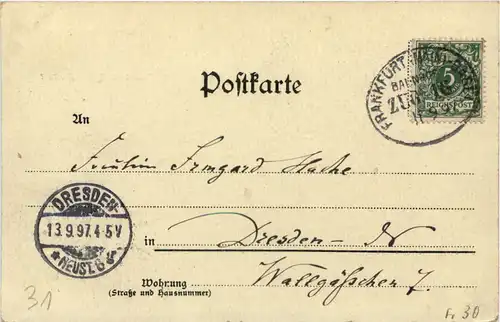 Postkarte
FRANKFURT (MAIN)-
BAHNPOST
ZUG
9 97
5
REICHSPOST
An
Fräulein Irmgard Hache
DRESDEN-
13.9.97.4-5V
*NEUST.6
in Dresden-N
Wallgäßchen 7.
Wohnung
(Straße und Hausnummer)
31
Fr 30